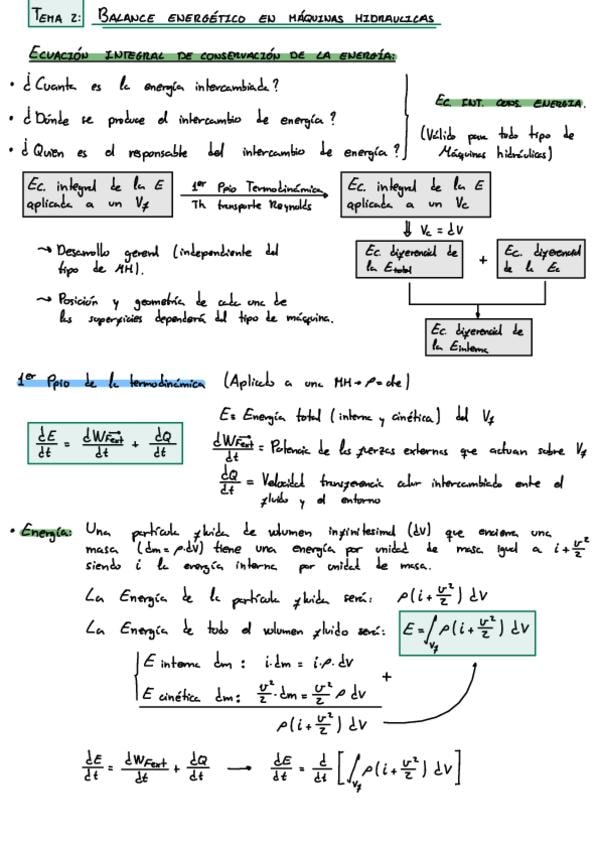 TEMA 2: BALANCE ENERGÉTICO EN MÁQUINAS HIDRAULICAS
ECUACIÓN INTEGRAL DE CONSERVACIÓN DE LA ENERGÍA:
• ¿Cuanta es la energía intercambiada?
• ¿Dónde se produce el intercambio de energía?
• ¿Quién es el responsable del intercambio de energía?
EC. INT. CONS. ENERGIA.
(Válido para todo tipo de
Máquinas hidráulicas)
Ec. integral de la E
aplicada a un Vf
1er Ppio Termodinámica
Th transporte Reynolds
Ec. integral de la E
aplicada a un Vc
⇓ Vc = dV
→ Desarrollo general (independiente del
tipo de MH).
→ Posición y geometría de cada una de
las superficies dependerá del tipo de máquina.
Ec. diferencial de
la Etotal
+
Ec. diferencial
de la Ec
Ec. diferencial de
la Einterna
1er Ppio de la termodinámica (Aplicado a una MH → ρ = cte)
dE/dt = dWFext/dt + dQ/dt
E = Energía total (interna y cinética) del Vf
dWFext/dt = Potencia de las fuerzas externas que actuan sobre Vf
dQ/dt = Velocidad transferencia calor intercambiado ente el
fluido y el entorno
• Energía: Una partícula fluida de volumen infinitesimal (dV) que encierra una
masa (dm = ρ·dV) tiene una energía por unidad de masa igual a i + v²/2
siendo i la energía interna por unidad de masa.
La Energía de la partícula fluida será: ρ(i + v²/2) dV
La Energía de todo el volumen fluido será: E = ∫Vf ρ(i + v²/2) dV
E interna dm: i·dm = i·ρ·dV
+
E cinética dm: v²/2·dm = v²/2 ρ dV
ρ(i + v²/2) dV
dE/dt = dWFext/dt + dQ/dt → dE/dt = d/dt [∫Vf ρ(i + v²/2) dV]